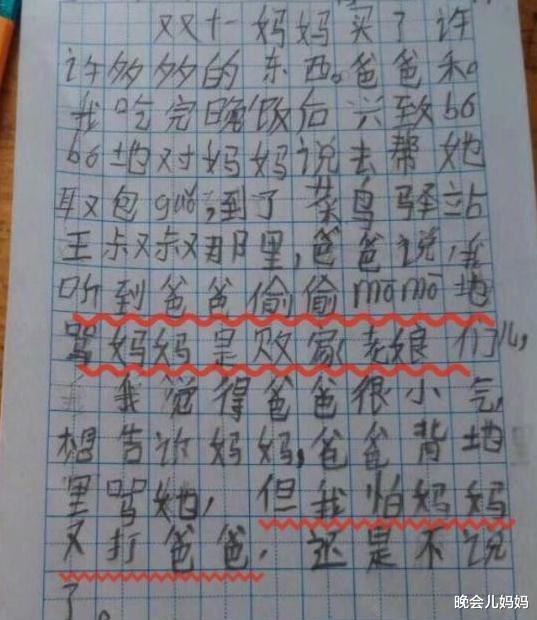 双十一妈妈买了许
许多多的东西。爸爸和
我吃完晚饭后兴致bó
bó地对妈妈说去帮她
取包guǒ,到了菜鸟驿站
王叔叔那里,爸爸说,我
听到爸爸偷偷mōmō地
骂妈妈是败家老娘们儿,
我觉得爸爸很小气,
想告诉妈妈,爸爸背地
里骂她,但我怕妈妈
又打爸爸,还是不说
了。
晚会儿妈妈